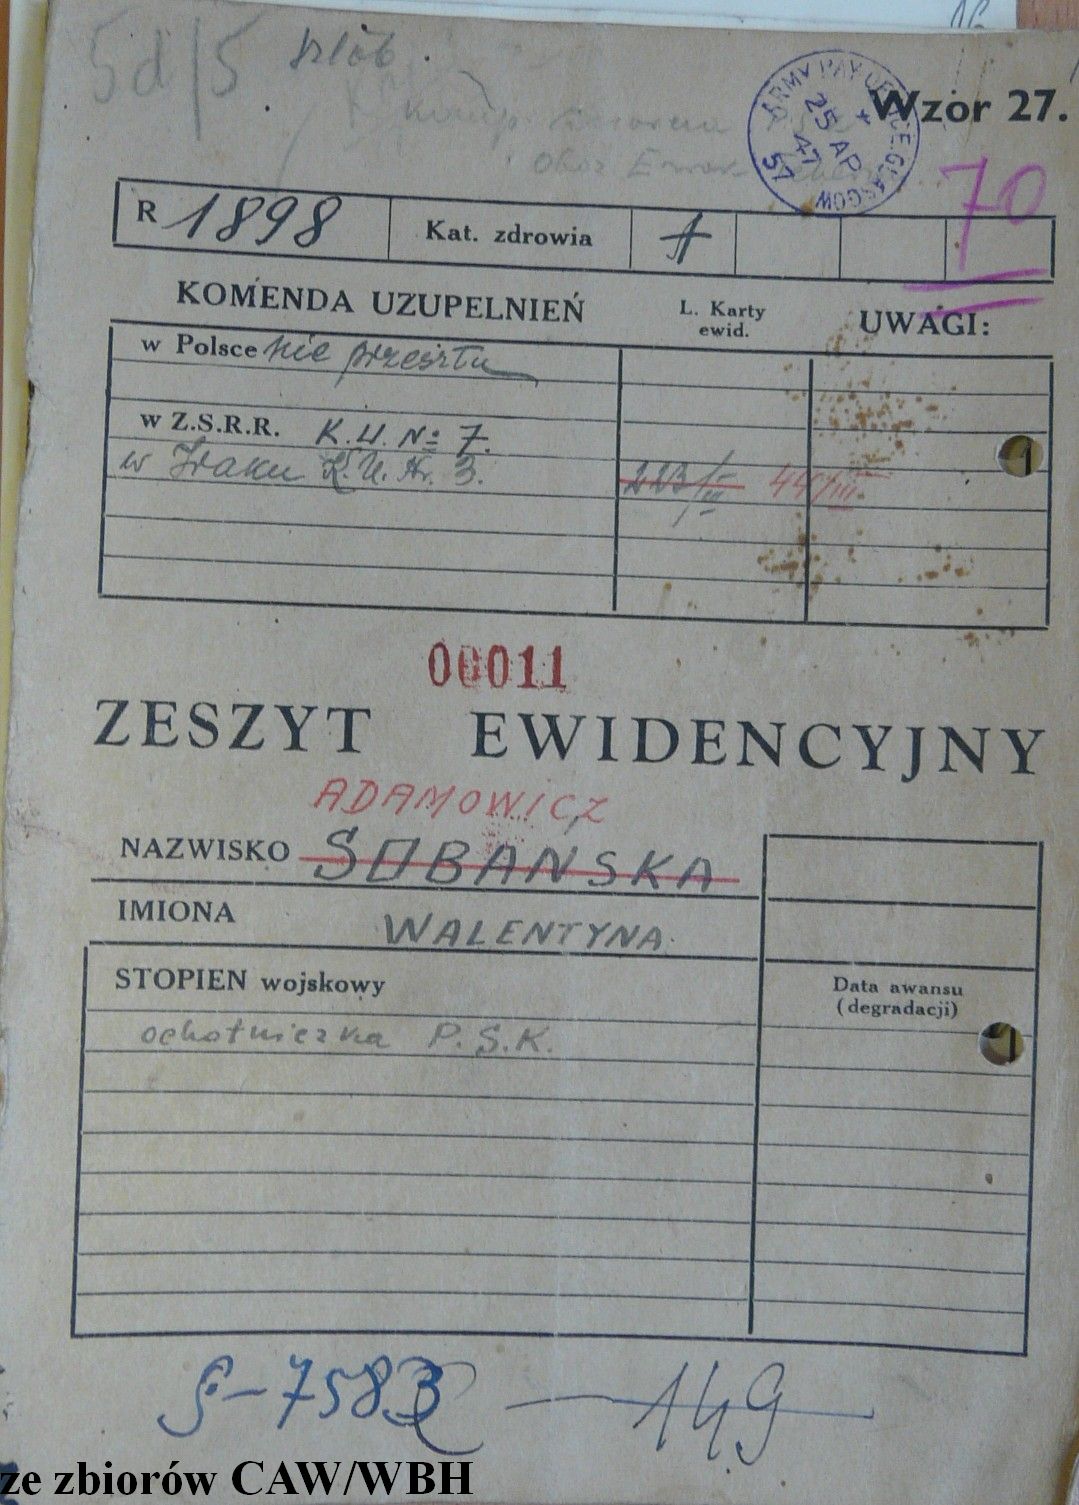 5d/5 szlab.
ARMY PAY OFFICE. GLASGOW
25 AP
47
57
Wzór 27.
70
R 1898 Kat. zdrowia A
KOMENDA UZUPEŁNIEŃ L. Karty ewid. UWAGI:
w Polsce nie przeszła
w Z.S.R.R. K.U. No 7.
w Iraku K.U. Nr. 3. 223/III 44/III
00011
ZESZYT EWIDENCYJNY
ADAMOWICZ
NAZWISKO SOBANSKA
IMIONA WALENTYNA
STOPIEN wojskowy Data awansu
(degradacji)
ochotniczka P.S.K.
1
1
S-7583 149
ze zbiorów CAW/WBH